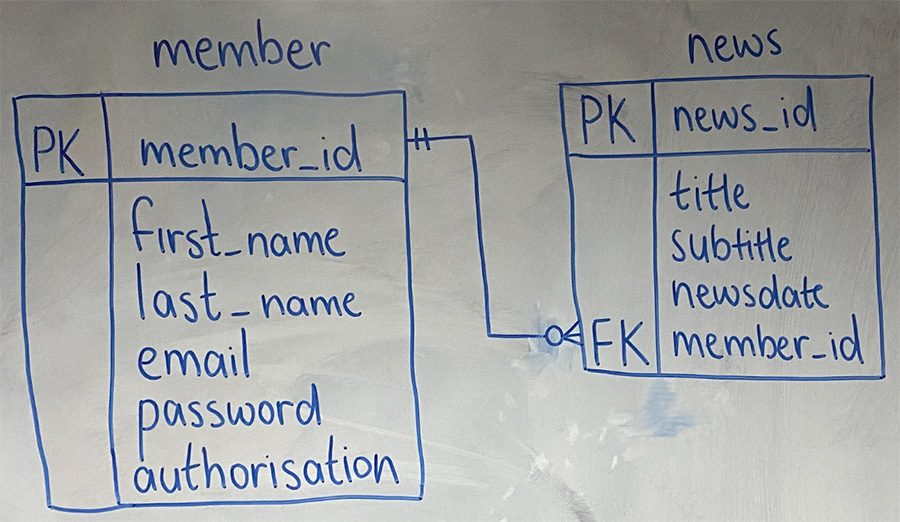 member
PK member_id
first_name
last_name
email
password
authorisation
news
PK news_id
title
subtitle
newsdate
FK member_id